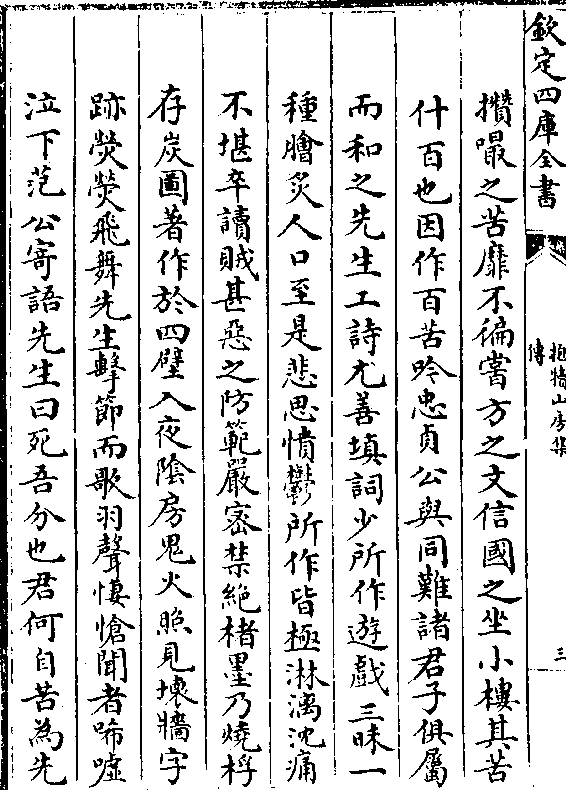 欽定四庫全書
抱犢山房集
傳
三
攢嘬之苦靡不徧嘗方之文信國之坐小樓其苦
什百也因作百苦吟忠貞公與同難諸君子俱屬
而和之先生工詩尤善填詞少所作遊戲三昧一
種膾炙人口至是悲思憤鬱所作皆極淋漓沈痛
不堪卒讀賊甚惡之防範嚴密禁絶楮墨乃燒桴
存炭圖著作於四壁入夜陰房鬼火照見壞牆字
跡熒熒飛舞先生擊節而歌羽聲悽愴聞者唏噓
泣下范公寄語先生曰死吾分也君何自苦為先